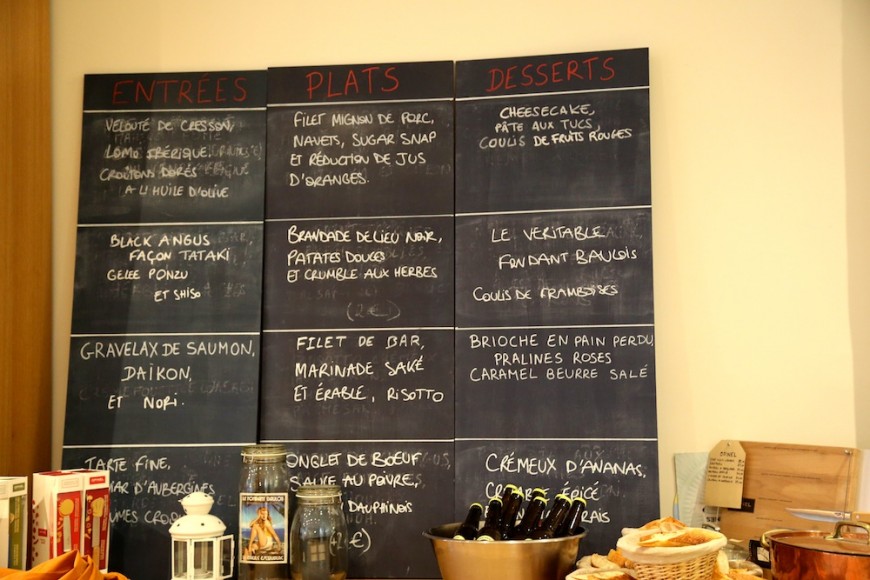 ENTRÉES
VELOUTÉ DE CRESSON,
LOMO IBÉRIQUE.
CROUTONS DORÉS
A L'HUILE D'OLIVE
BLACK ANGUS
FAÇON TATAKI,
GELEE PONZU
ET SHISO
GRAVELAX DE SAUMON,
DAIKON,
ET NORI.
TARTE FINE,
D'AUBERGINES
PLATS
FILET MIGNON DE PORC,
NAVETS, SUGAR SNAP
ET RÉDUCTION DE JUS
D'ORANGES.
BRANDADE DE LIEU NOIR,
PATATES DOUCES
ET CRUMBLE AUX HERBES
(2€)
FILET DE BAR,
MARINADE SAKÉ
ET ÉRABLE, RISOTTO
ONGLET DE BŒUF
SAUCE AU POIVRE,
DAUPHINOIS
(2€)
DESSERTS
CHEESECAKE,
PÂTE AUX TUCS,
COULIS DE FRUITS ROUGES
LE VERITABLE
FONDANT BAULOIS
COULIS DE FRAMBOISES
BRIOCHE EN PAIN PERDU,
PRALINES ROSES
CARAMEL BEURRE SALÉ
CRÉMEUX D'ANANAS,
ÉPICÉ
LE FONDANT BAULOIS